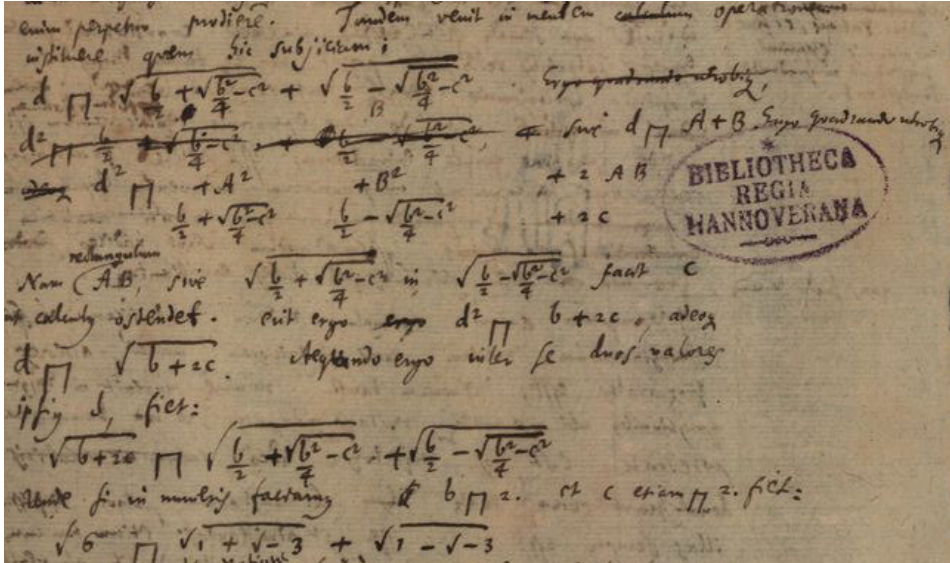 enim perpetuo prodiere. Tandem venit in mentem calculum
instituere quem hic subjiciam:
d ⊓ √(b/2 + √(b²/4 - c²)) + √(b/2 - √(b²/4 - c²)) Ergo quadrando utrobiq,
B
d² ⊓ b/2 + √(b²/4 - c²), + b/2 √(b²/4 c², + sive d ⊓ A + B. Ergo quadrando utrobiq
d² ⊓ + A² + B² + 2 AB
b/2 + √(b²/4 - c²) b/2 - √(b²/4 - c²) + 2c
rectangulum
Nam AB, sive √(b/2 + √(b²/4 - c²)) in √(b/2 - √(b²/4 - c²)) facit c
ut calculus ostendet. erit ergo ergo d² ⊓ b + 2c, adeoq
d ⊓ √(b + 2c). Aequando ergo inter se duos valores
ipsius d, fiet:
√(b + 2c) ⊓ √(b/2 + √(b²/4 - c²)) + √(b/2 - √(b²/4 - c²))
si in numeris faciamus b ⊓ 2. et c etiam ⊓ 2. fiet:
√6 ⊓ √(1 + √-3) + √(1 - √-3)
BIBLIOTHECA
REGIA
HANNOVERANA